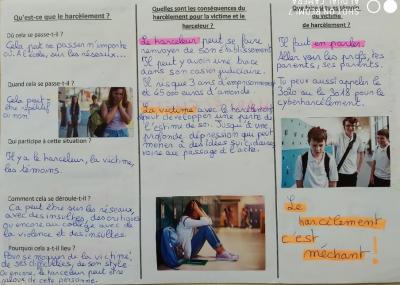 Qu'est-ce que le harcèlement ?
Où cela se passe-t-il ?
Cela peut se passer n'importe
où. À l'école, sur les réseaux...
Quand cela se passe-t-il ?
Cela peut
être répétitif
ou non.
Qui participe à cette situation ?
Il y a le harceleur, la victime,
les témoins.
Comment cela se déroule-t-il ?
Ca peut être sur les réseaux,
avec des insultes, des critiques
ou encore au collège avec de
la violence et des insultes.
Pourquoi cela a-t-il lieu ?
Pour se moquer de la victime,
de ses difficultés, de son style
ou encore, le harceleur peut être
jaloux de cette personne.
Quelles sont les conséquences du
harcèlement pour la victime et le
harceleur ?
Le harceleur peut se faire
renvoyer de son établissement
Il peut y avoir une trace
dans son casier judiciaire.
Il risque 3 ans d'emprisonnement
et 45 000 euros d'amende.
La victime avec le harcèlement
peut développer une perte de
l'estime de soi. Jusqu'à une
profonde dépression qui peut
mener à des idées suicidaires
voire au passage à l'acte.
ou victime
de harcèlement ?
Il faut en parler.
Aller voir les profs, tes
parents, ses parents.
Tu peux aussi appeler le
3020 ou le 3018 pour le
cyberharcèlement.
Le
harcèlement
c'est
méchant !